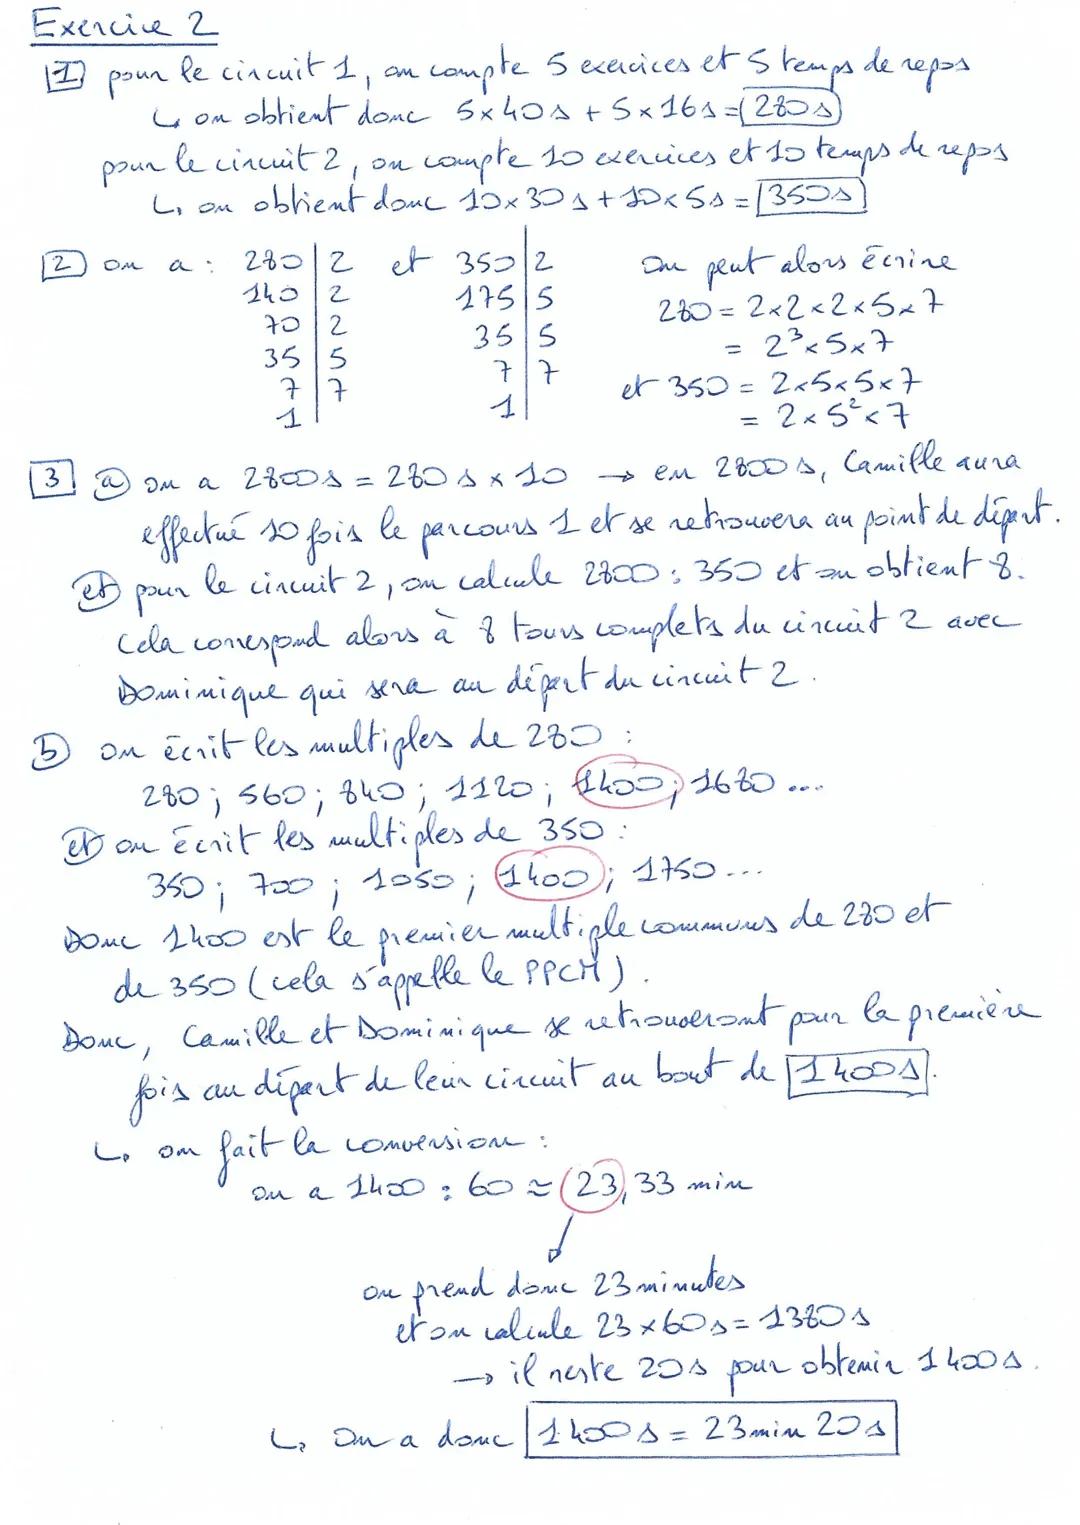 Exercice 2
1 pour le circuit 1, on compte 5 exercices et 5 temps de repos
↳ on obtient donc 5×40s + 5×16s = 280s
pour le circuit 2, on compte 10 exercices et 10 temps de repos
↳ on obtient donc 10×30s + 10×5s = 350s
2 on a : 280 | 2 et 350 | 2 On peut alors écrire
140 | 2 175 | 5 280 = 2×2×2×5×7
70 | 2 35 | 5 = 2³×5×7
35 | 5 7 | 7 et 350 = 2×5×5×7
7 | 7 1 | = 2×5²×7
1 |
3 a on a 2800s = 280s × 10 → en 2800s, Camille aura
effectué 10 fois le parcours 1 et se retrouvera au point de départ.
et pour le circuit 2, on calcule 2800 : 350 et on obtient 8.
Cela correspond alors à 8 tours complets du circuit 2 avec
Dominique qui sera au départ du circuit 2.
b on écrit les multiples de 280 :
280 ; 560 ; 840 ; 1120 ; 1400 ; 1680 ...
et on écrit les multiples de 350 :
350 ; 700 ; 1050 ; 1400 ; 1750 ...
Donc 1400 est le premier multiple communs de 280 et
de 350 (cela s'appelle le PPCM).
Donc, Camille et Dominique se retrouveront pour la première
fois au départ de leur circuit au bout de 1400s.
↳ on fait la conversion :
on a 1400 : 60 ≈ 23,33 min
on prend donc 23 minutes
et on calcule 23 × 60s = 1380s
→ il reste 20s pour obtenir 1400s.
↳ On a donc 1400s = 23min 20s